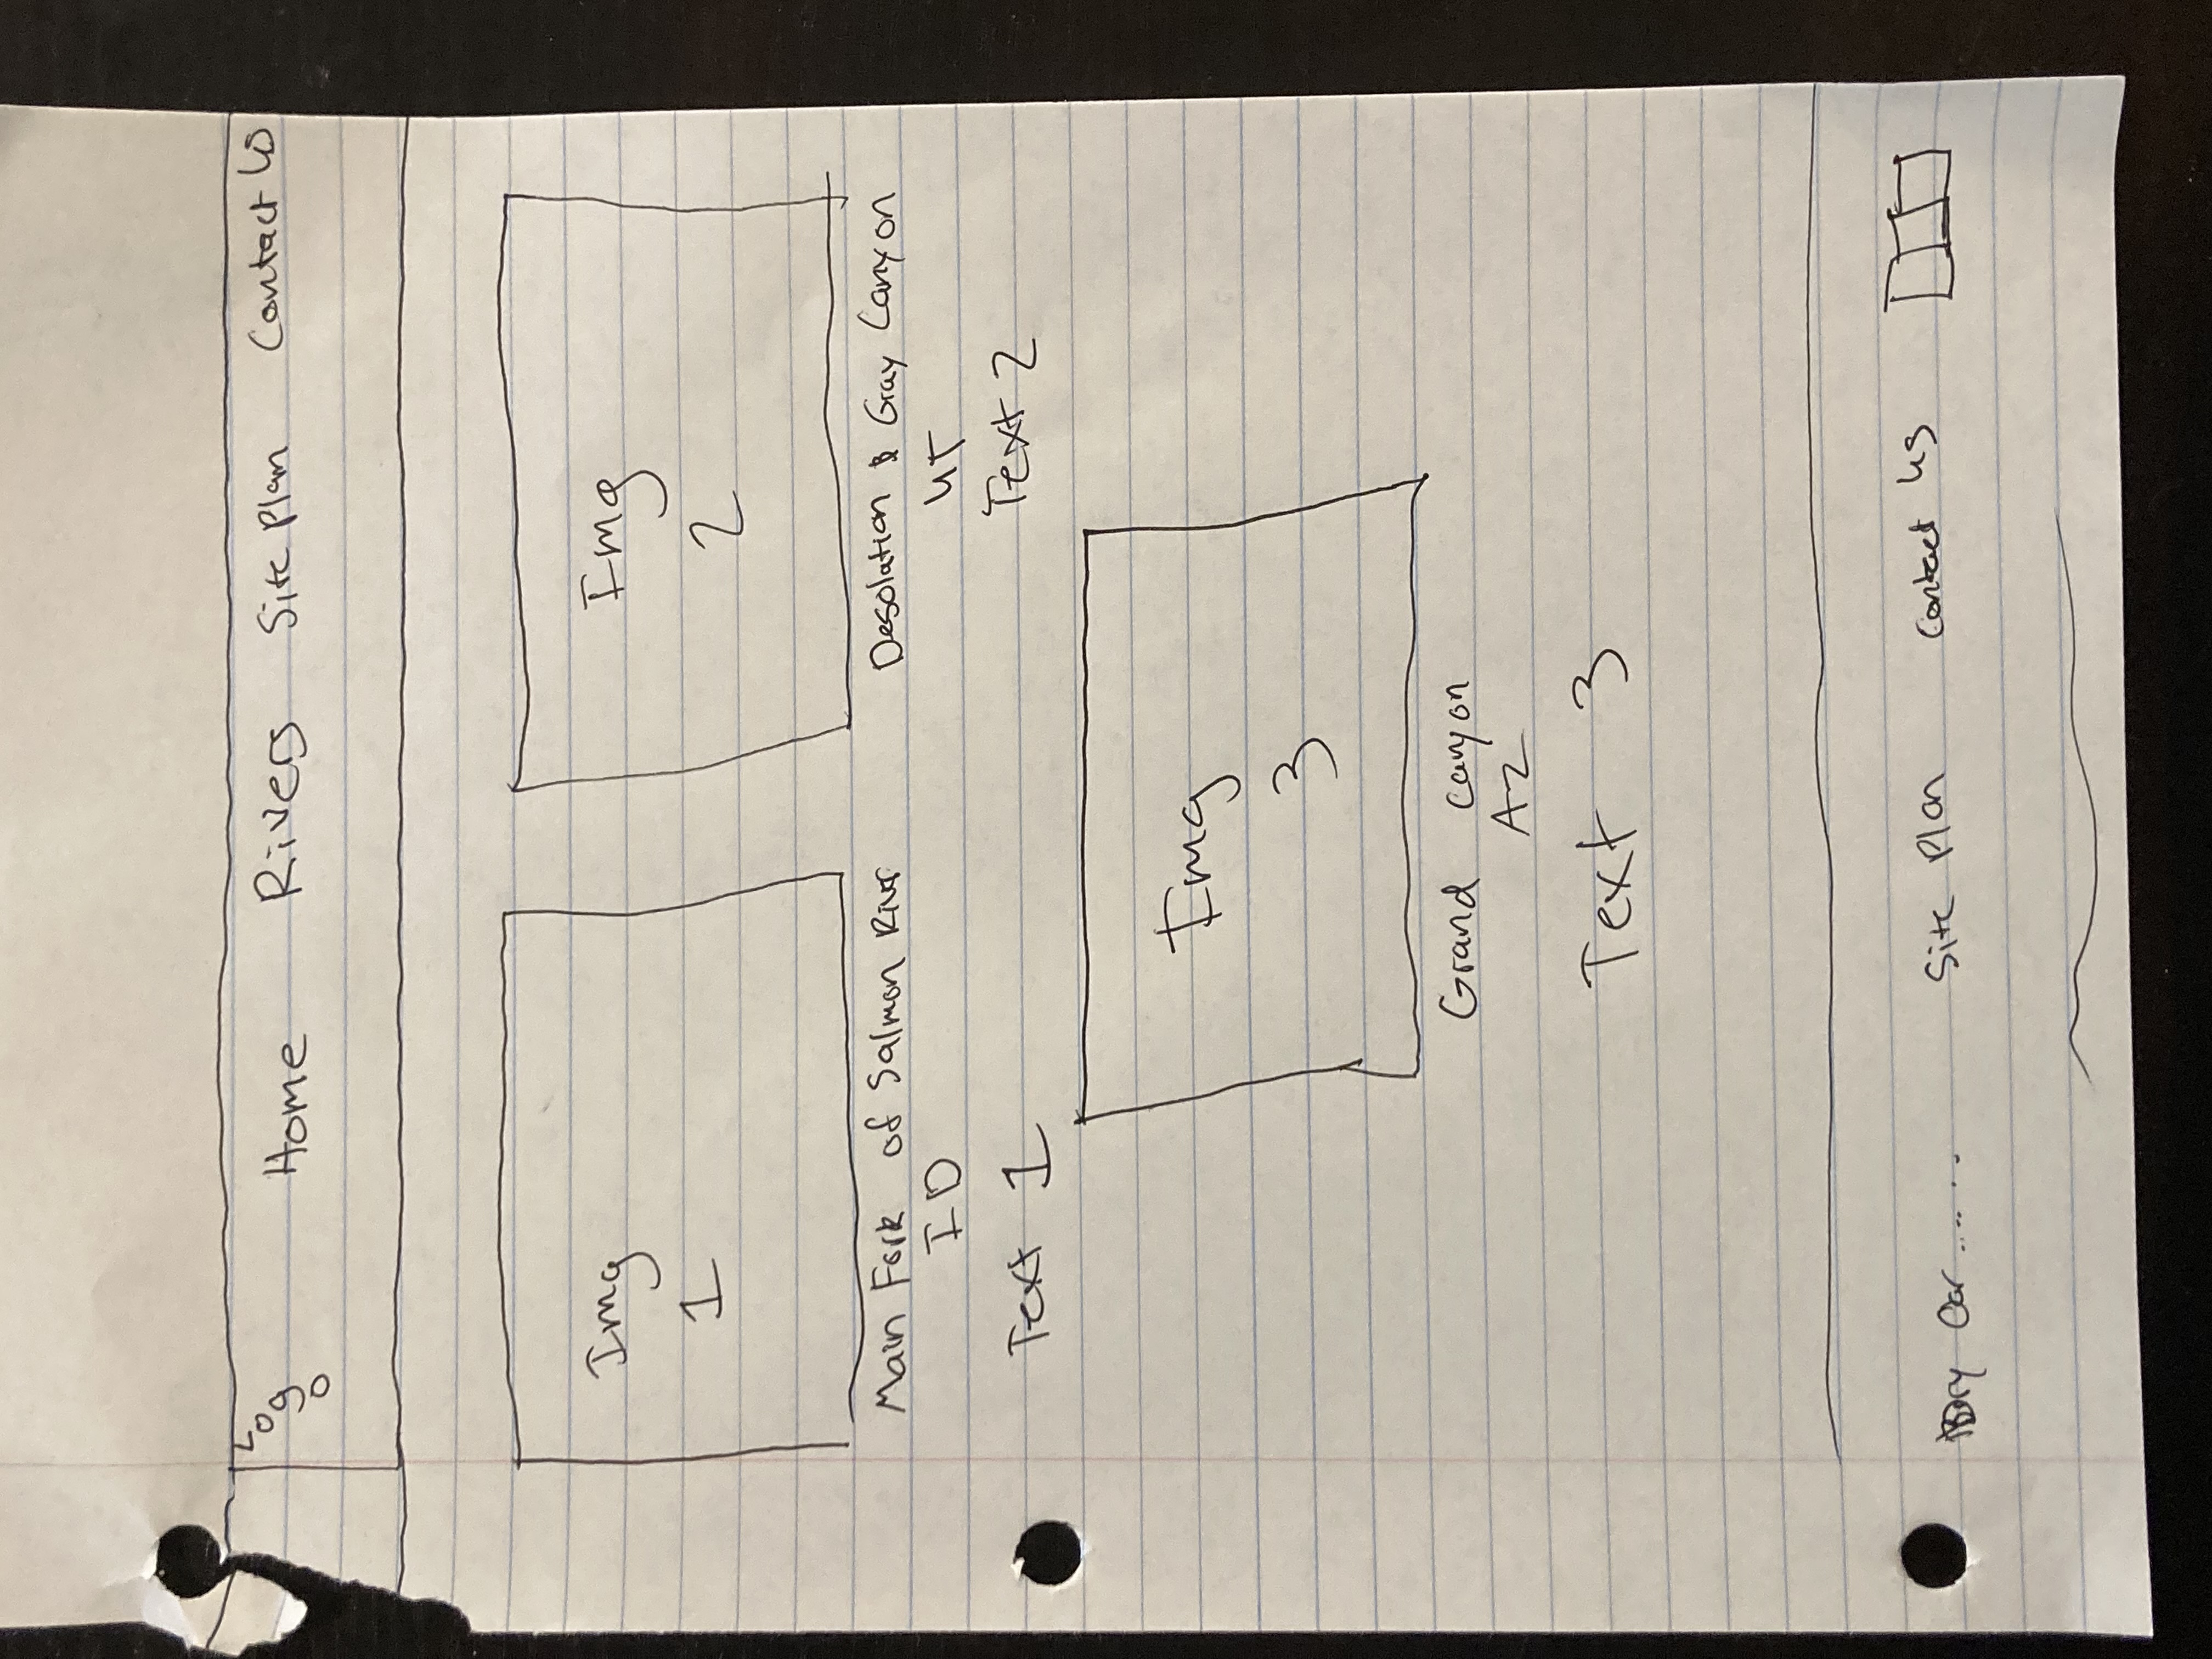 Logo Home Rivers Site Plan Contact Us
Img Img
1 2
Main Fork of Salmon River Desolation & Gray Canyon
ID UT
Text 1 Text 2
Img
3
Grand Canyon
AZ
Text 3
Car ...... Site Plan Contact Us